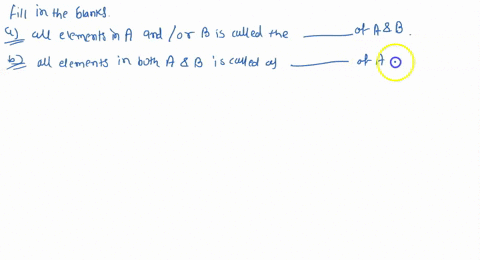 fill in the blanks.
a) all elements in A and /or B is called the ______ of A & B.
b) all elements in both A & B is called as ______ of A